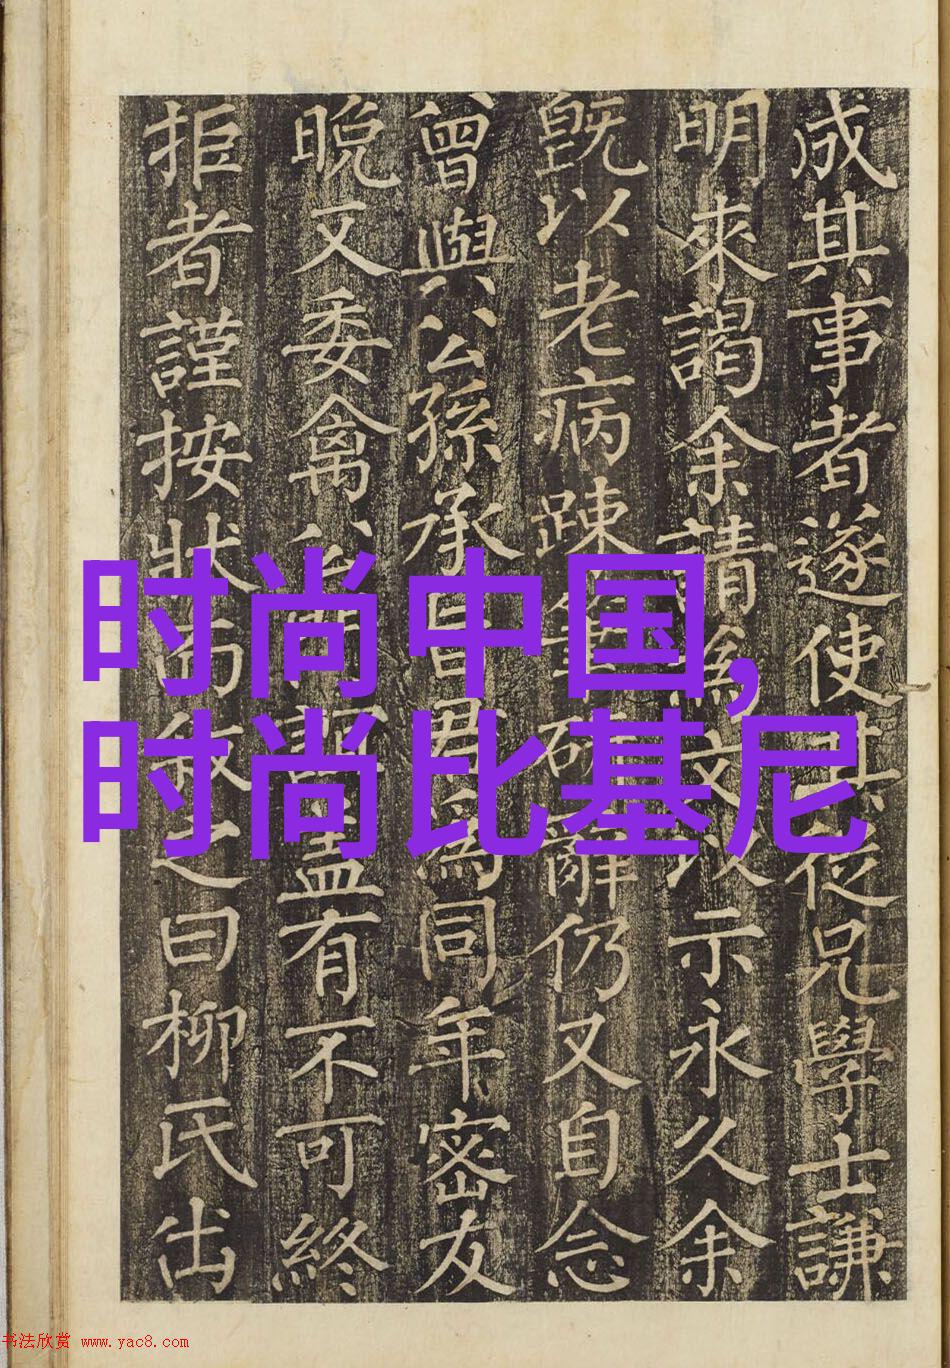 成其事者遂使其從兄學士謙
明來謁余請為文以示永久余
既以老病踈筆硯辭仍又自念
曾與公孫承旨君為同年密友
晚又委禽盖有不可終
拒者謹按狀而叙之曰柳氏出
时尚中国,
时尚比基尼
书法欣赏 www.yac8.com